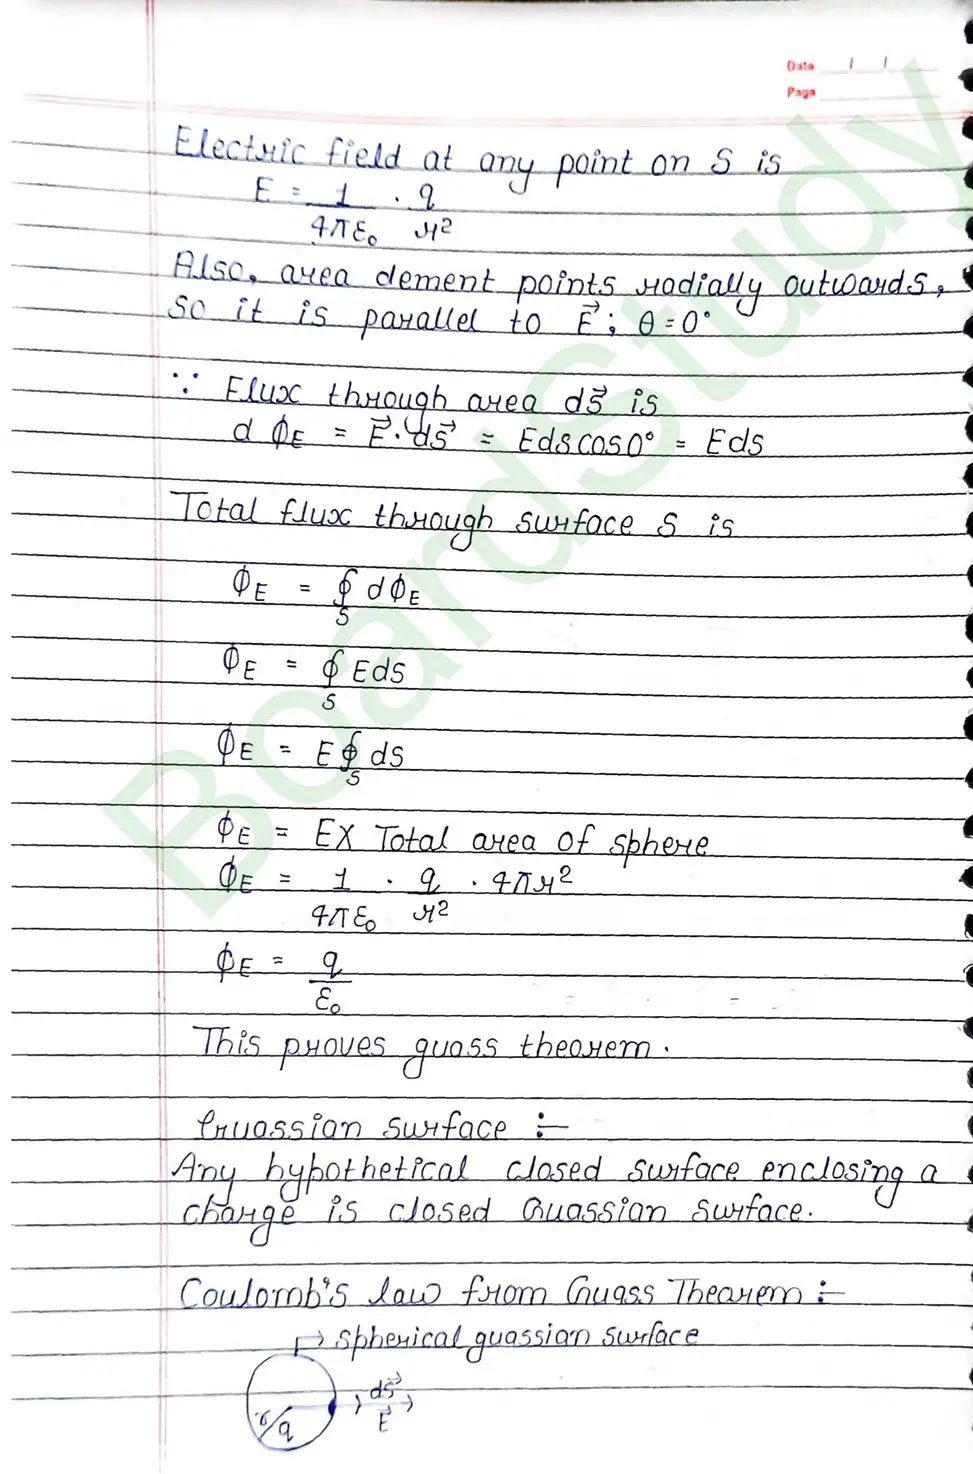 Date / /
Page
Electric field at any point on S is
E = 1/4πε₀ · q/r²
Also, area dement points radially outwards,
so it is parallel to E⃗; θ=0°
∵ Flux through area dS⃗ is
dϕE = E⃗·dS⃗ = Edscos0° = Eds
Total flux through surface S is
ϕE = ∮S dϕE
ϕE = ∮S Eds
ϕE = E∮S ds
ϕE = EX Total area of sphere
ϕE = 1/4πε₀ · q/r² · 4πr²
ϕE = q/ε₀
This proves guass theorem.
Gruassian surface :-
Any hypothetical closed surface enclosing a
charge is closed Guassian surface.
Coulomb's law from Guass Theorem :-
→ spherical guassian surface
dS⃗
r q E⃗
BoardStudy